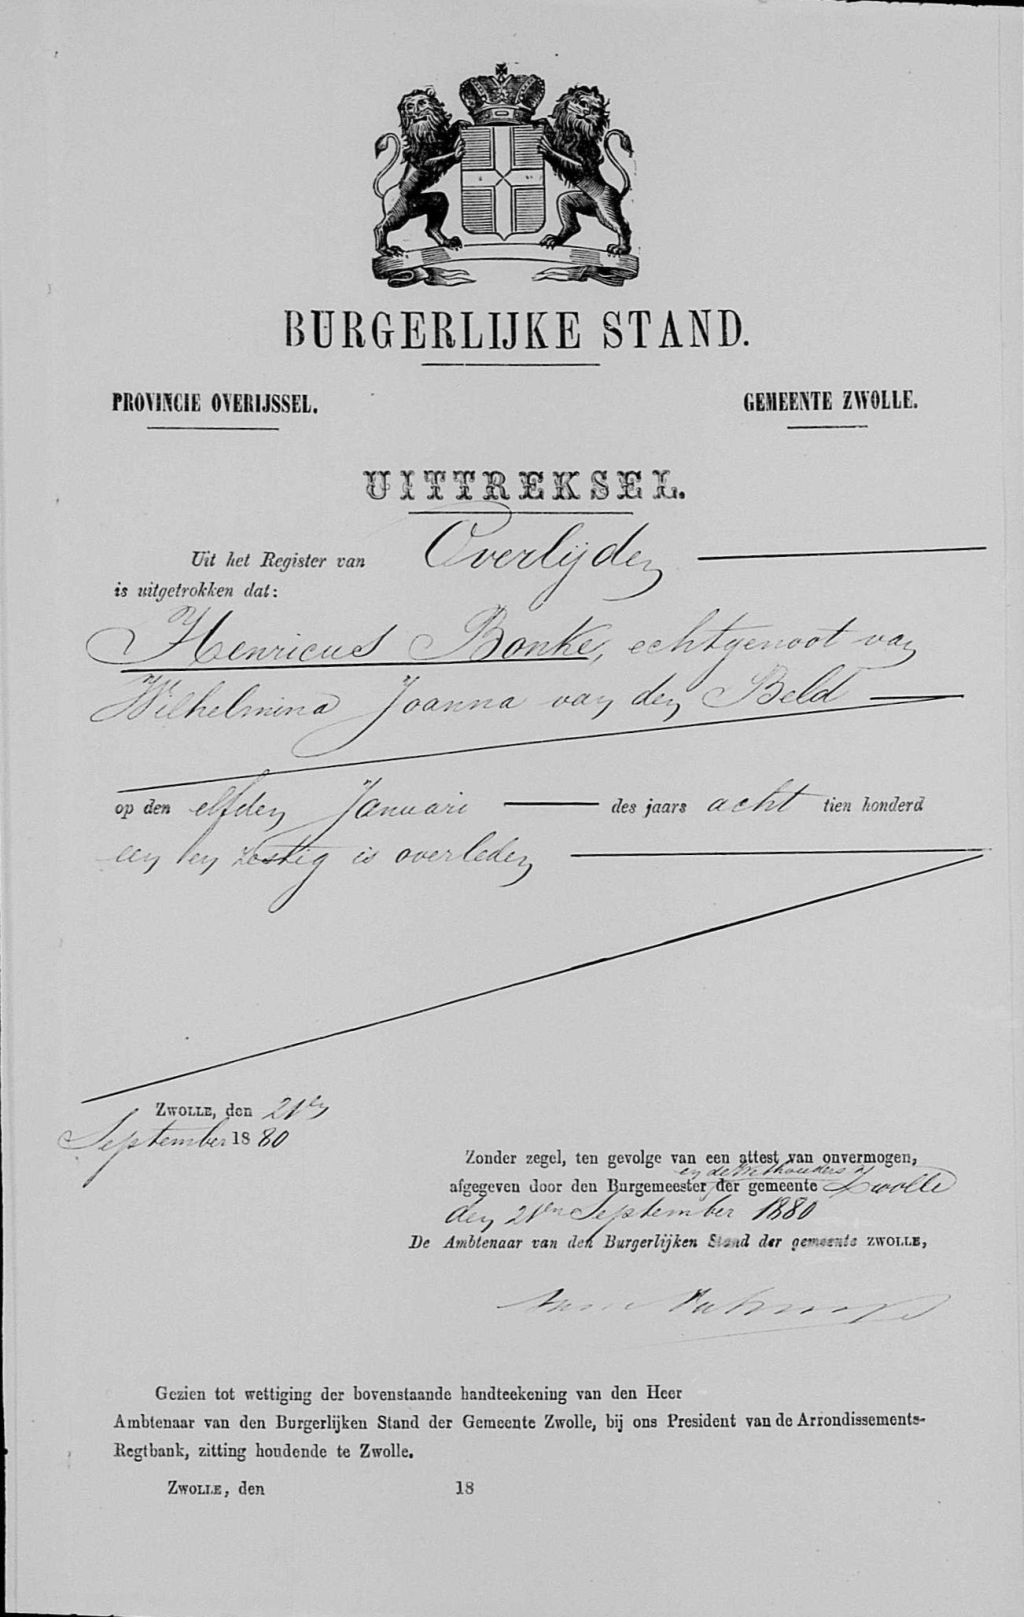 BURGERLIJKE STAND.
PROVINCIE OVERIJSSEL.
GEMEENTE ZWOLLE.
UITTREKSEL.
Uit het Register van Overlijden
is uitgetrokken dat:
Henricus Bonke, echtgenoot van
Wilhelmina Joanna van den Beld
op den elfden Januari des jaars acht tien honderd
een en zestig is overleden
ZWOLLE, den 21en
September 1880
Zonder zegel, ten gevolge van een attest van onvermogen,
en de Wethouders
afgegeven door den Burgemeester der gemeente Zwolle
den 21en September 1880
De Ambtenaar van den Burgerlijken Stand der gemeente ZWOLLE,
Gezien tot wettiging der bovenstaande handteekening van den Heer
Ambtenaar van den Burgerlijken Stand der Gemeente Zwolle, bij ons President van de Arrondissements-
Regtbank, zitting houdende te Zwolle.
ZWOLLE, den 18